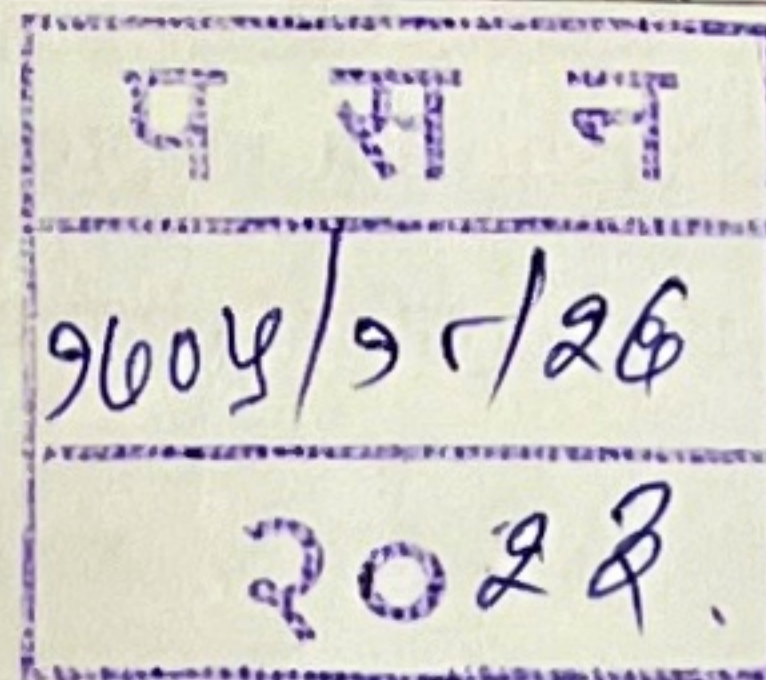 प स न
१७०५/१८/२७
२०२३